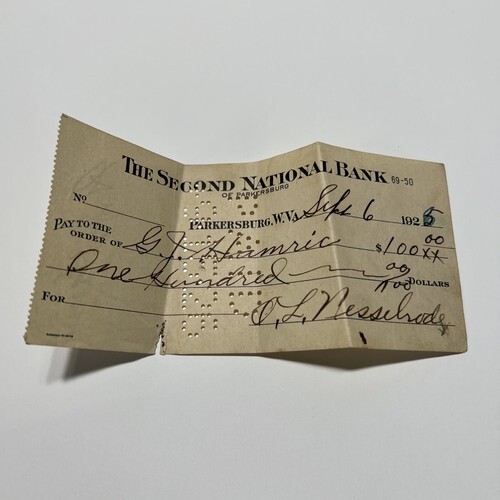 THE SECOND NATIONAL BANK 69-50
OF PARKERSBURG
No
PARKERSBURG, W.VA. Sept 6 1925
PAY TO THE
ORDER OF G. J. Hamric $100 00/XX
One Hundred 00/100 DOLLARS
FOR O. L. Nesselrode